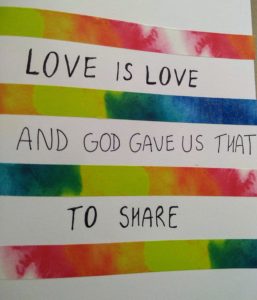 LOVE IS LOVE
AND GOD GAVE US THAT
TO SHARE